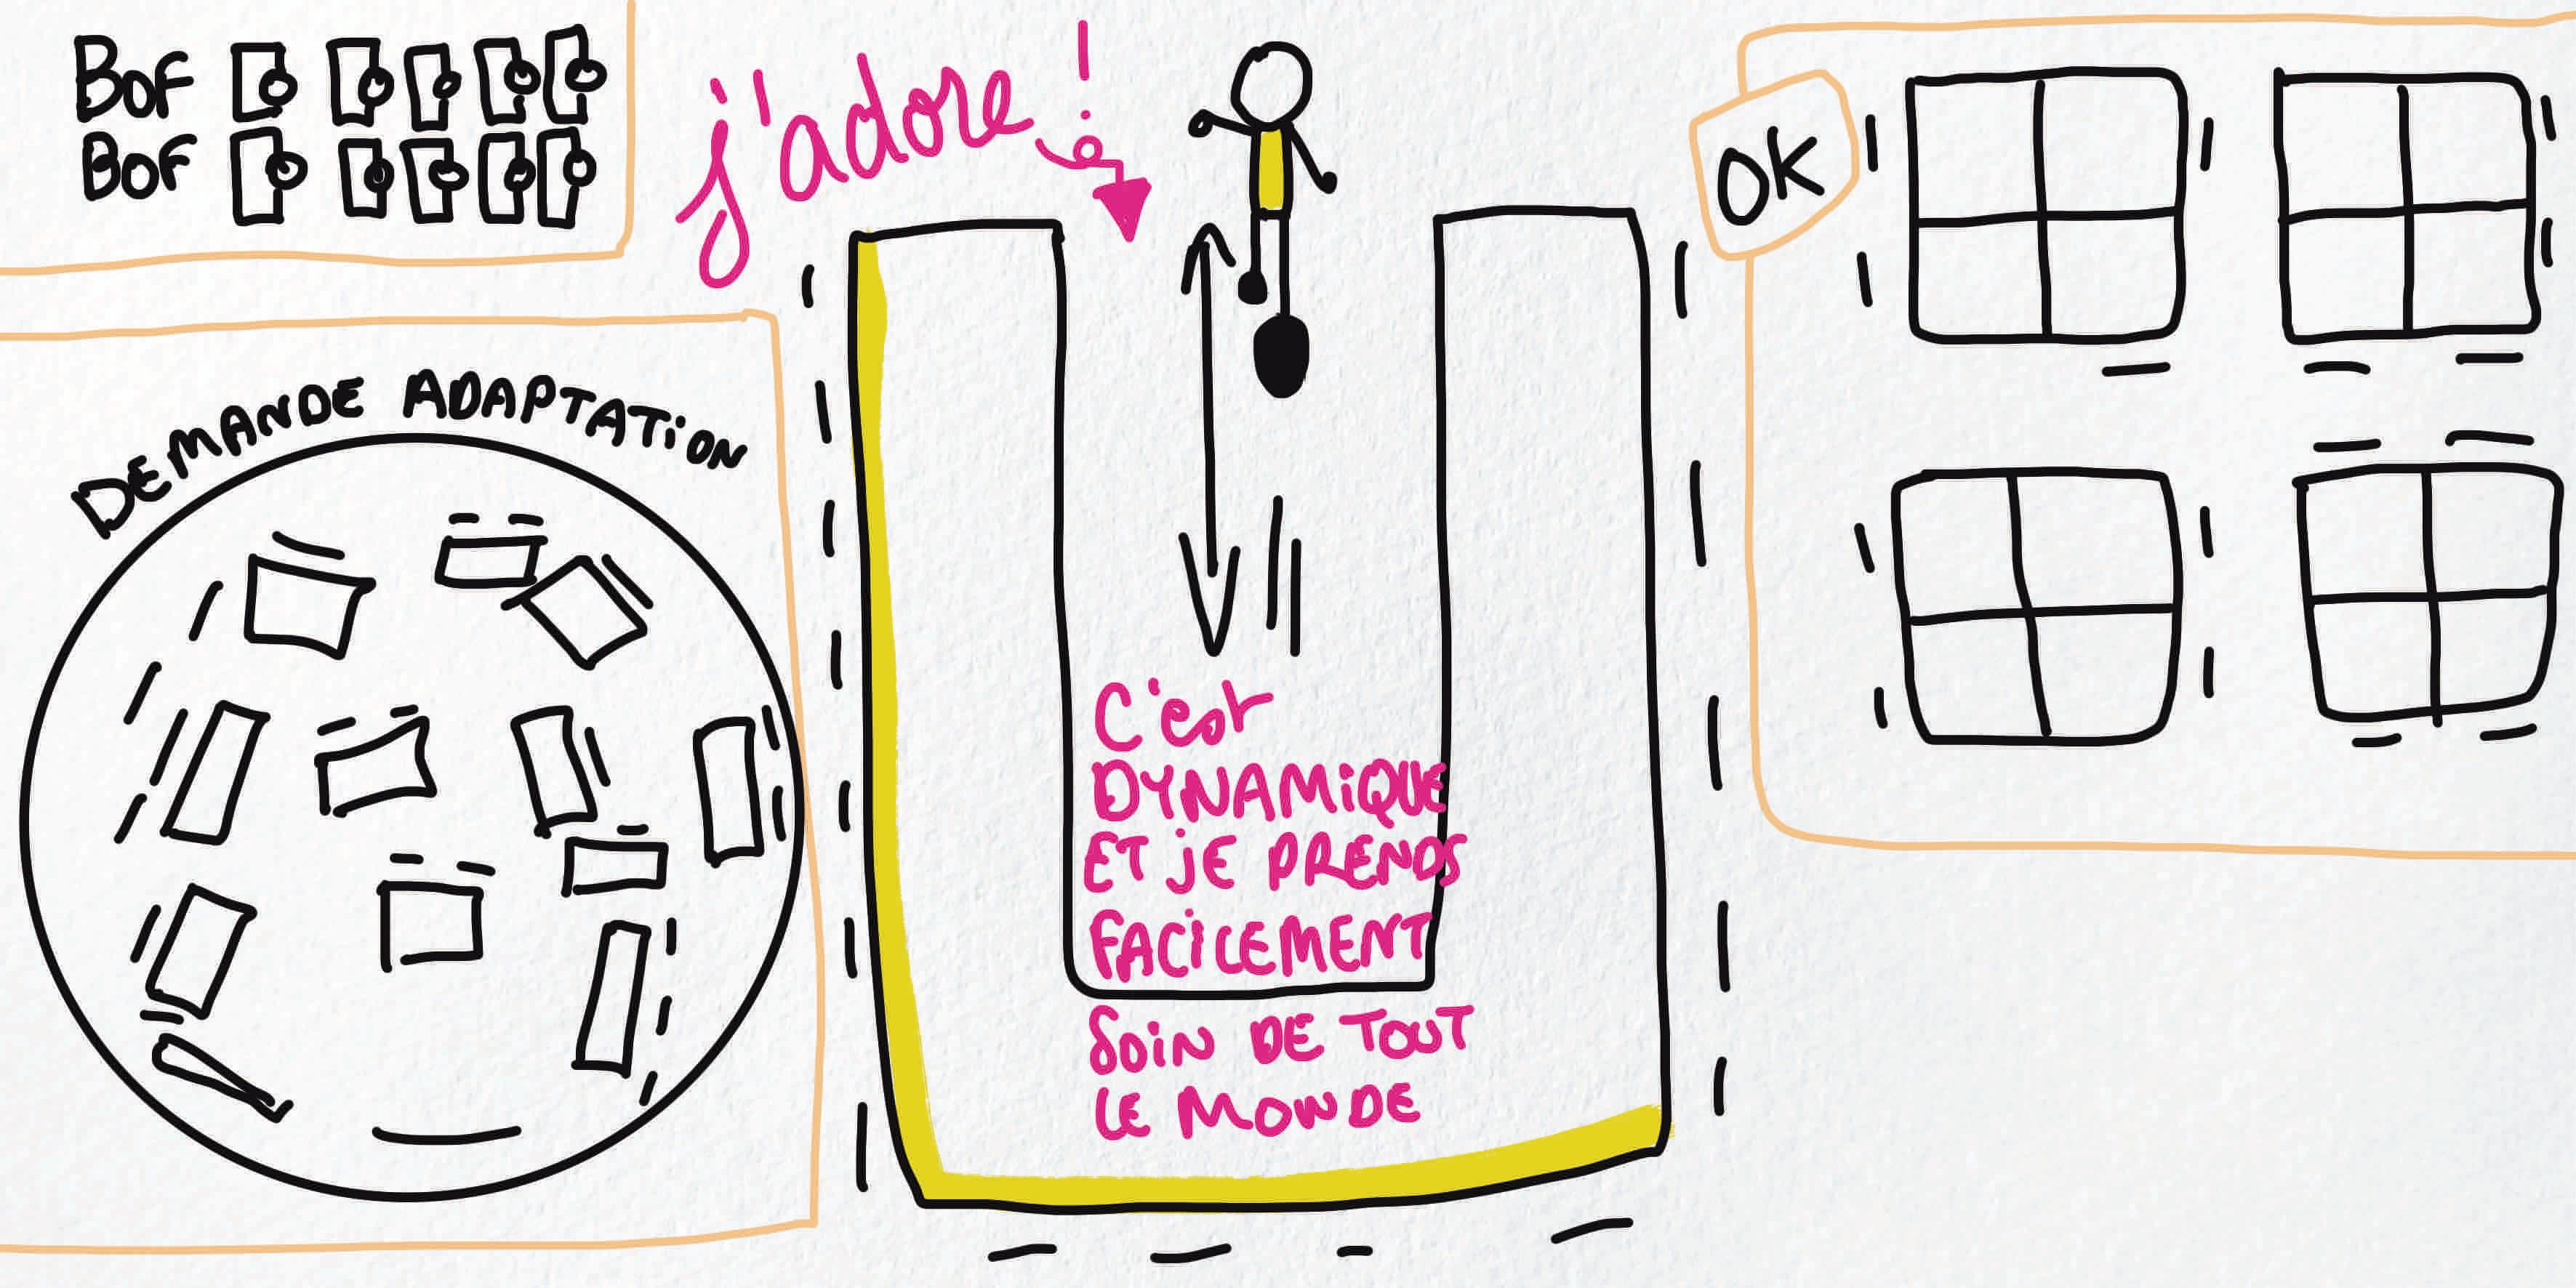 BOF
BOF
j'adore !
OK
DEMANDE ADAPTATION
C'est
DYNAMIQUE
ET JE PRENDS
FACILEMENT
SOIN DE TOUT
LE MONDE